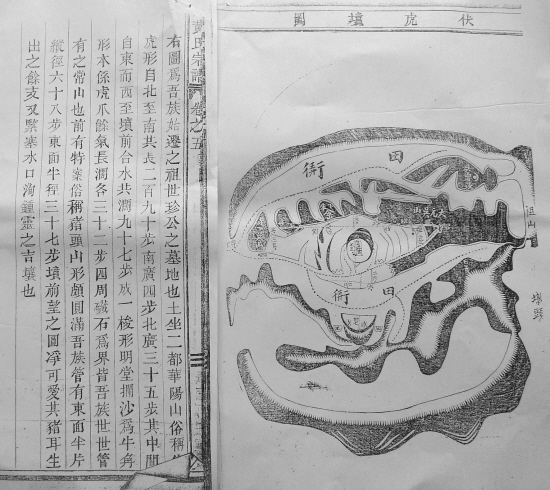 伏虎墳圖
祖山
墩野
衛田
衛田
黃氏宗譜 卷之五
右圖爲吾族始遷之祖世珍公之墓地也土坐二都華陽山俗稱
虎形自北至南共長二百九十步南廣四步北廣三十五步其中間
自東而西至墳前合水共濶九十七步成一梭形明堂攔沙爲牛角
形本係虎爪餘氣長濶各三十二步四周礙石爲界皆吾族世世管
有之常山也前有特案俗稱猪頭山形頗圓滿吾族管有東面半片
縱徑六十八步東面半徑三十七步墳前望之圓淨可愛其猪耳生
出之餘支又緊塞水口洵鍾靈之吉壤也